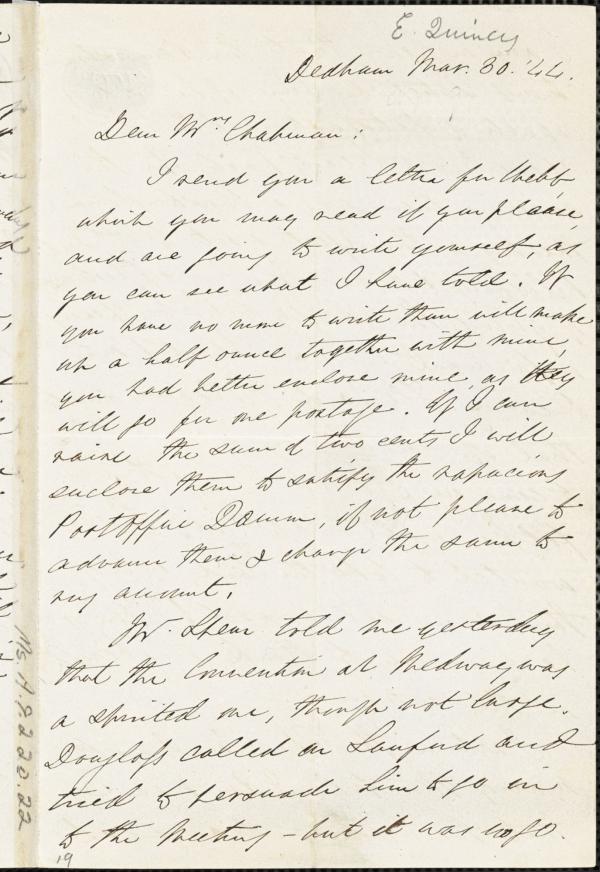 E. Quincy
Dedham Mar. 30. '44.
Dear Mrs. Chapman:
I send you a letter for Webb
which you may read if you please,
and are going to write yourself, as
you can see what I have told. If
you have no more to write than will make
up a half ounce together with mine,
you had better enclose mine, as they
will go for one postage. If I can
raise the sum of two cents I will
enclose them to satisfy the rapacious
Post Office Dämon, if not please to
advance them & charge the same to
my account.
Mr. Spear told me yesterday
that the Convention at Medway was
a spirited one, though not large.
Douglass called on Sanford and
tried to persuade him to go in
to the meeting – but it was no go.
19
Ms. A.9.2 20.22